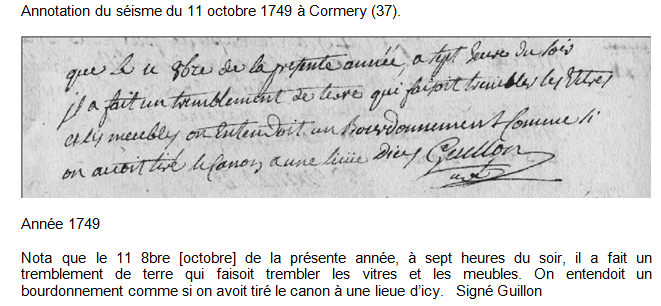 Annotation du séisme du 11 octobre 1749 à Cormery (37).
que le 11 8bre de la presente année, a sept heure du soir
il a fait un tremblement de terre qui faisoit trembler les vitres
et les meubles on Entendoit un Bourdonnement Comme si
on avoit tiré le Canon a une lieüe dicy Guillon
Année 1749
Nota que le 11 8bre [octobre] de la présente année, à sept heures du soir, il a fait un
tremblement de terre qui faisoit trembler les vitres et les meubles. On entendoit un
bourdonnement comme si on avoit tiré le canon à une lieue d'icy. Signé Guillon